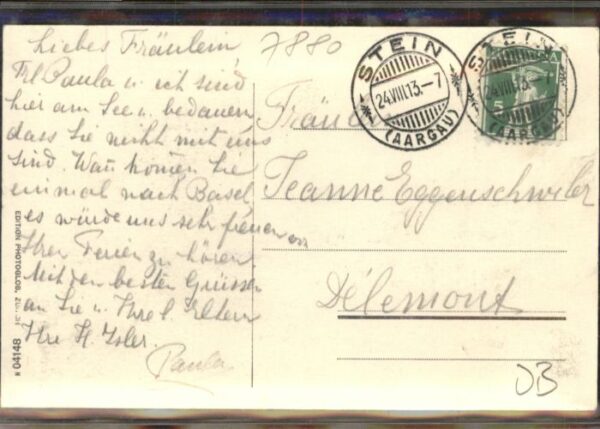 Liebes Fräulein
Frl. Paula u. ich sind
hier am See u. bedauern
dass Sie nicht mit uns
sind. Wan komen Sie
einmal nach Basel,
es würde uns sehr freuen von
Ihren Ferien zu hören
Mit den besten Grüssen
an Sie u. Ihre l. Eltern
Ihre H. Isler.
Paula
7880
STEIN
24.VIII.13.–7
(AARGAU)
STEIN
24.VIII.13.–7
(AARGAU)
5
Fräulein
Jeanne Eggenschwiler
Délemont
DB
EDITION PHOTOGLOB,
N 04148